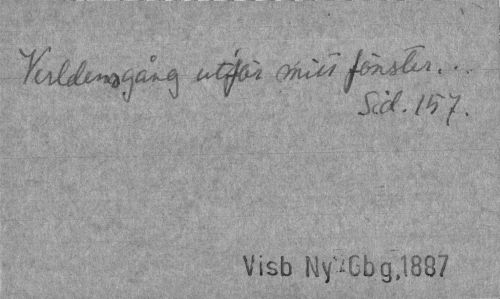 Verldens gång utför mitt fönster...
Sid. 157.
Visb Ny Gbg, 1887